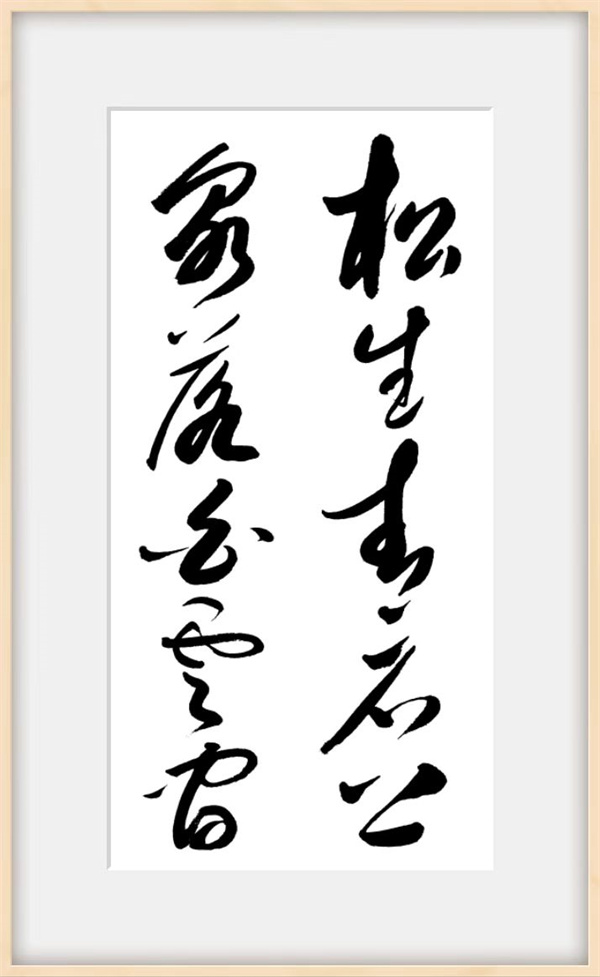 松生青石上
泉落白雲間